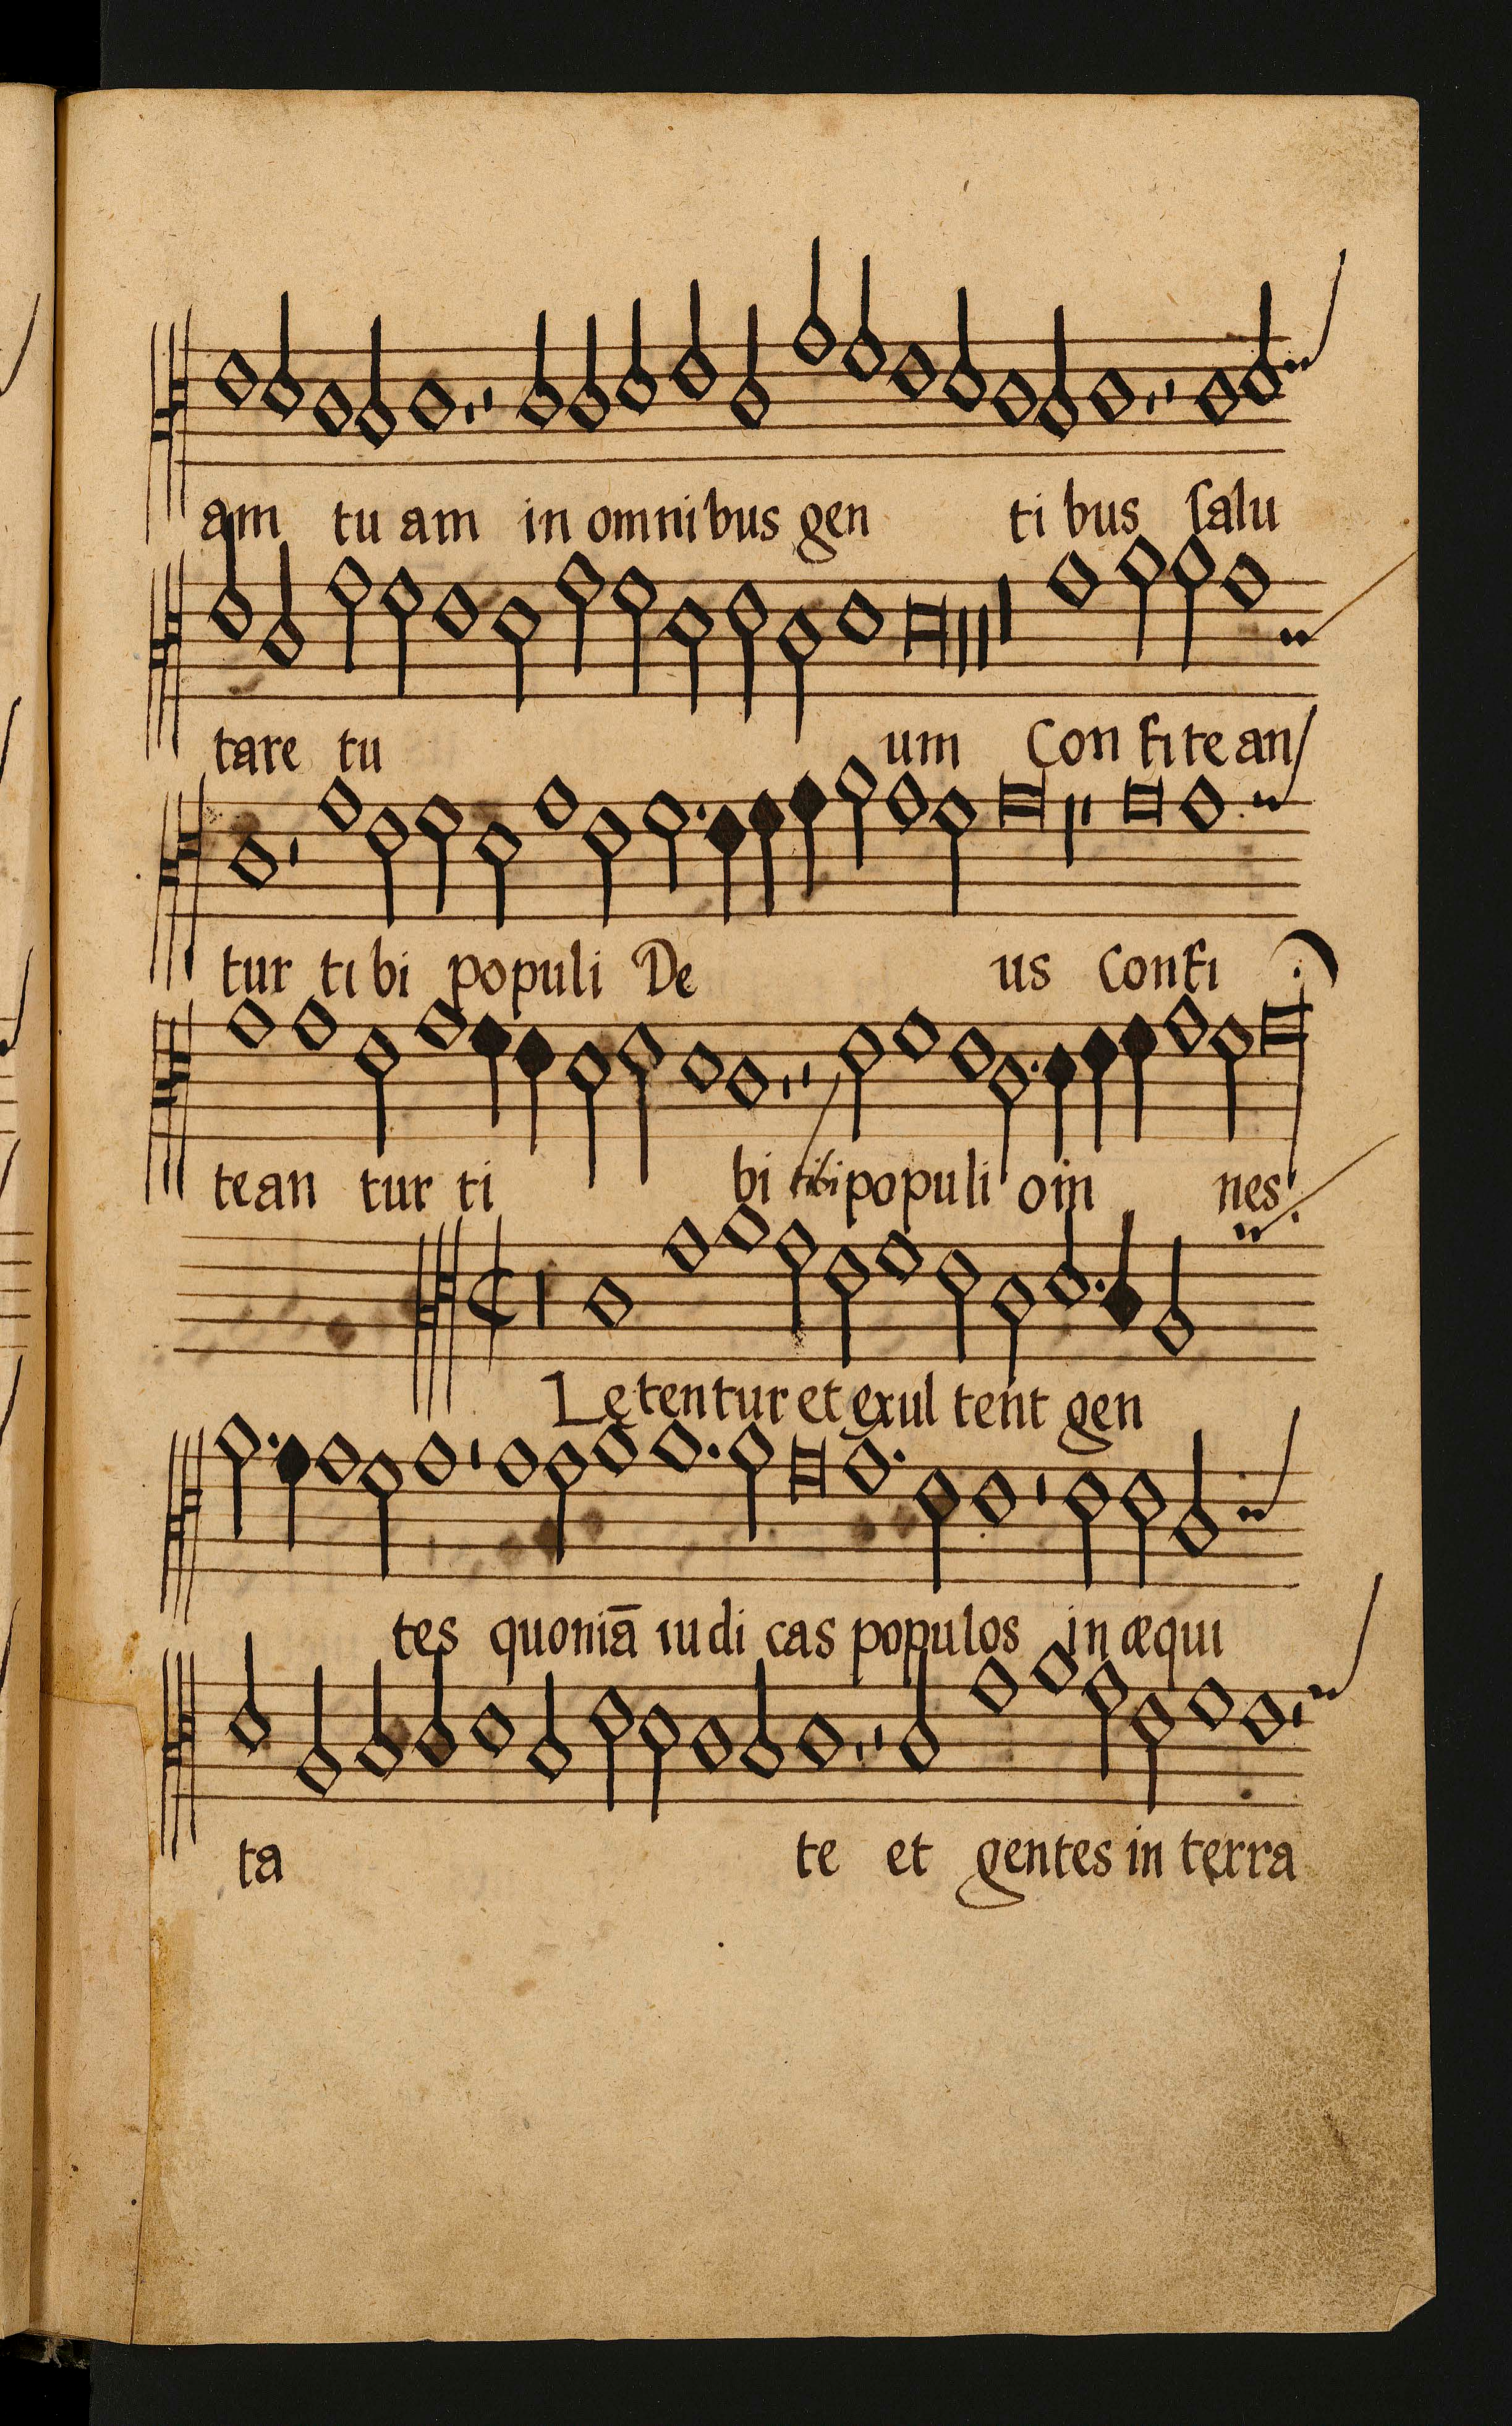 am tu am in omnibus gen ti bus ſalu
tare tu um Con fi te an
tur ti bi populi De us Confi
tean tur ti bi tibi populi om nes
Lętentur et exul tent gen
tes quoniā iudi cas populos in æqui
ta te et gentes in terra